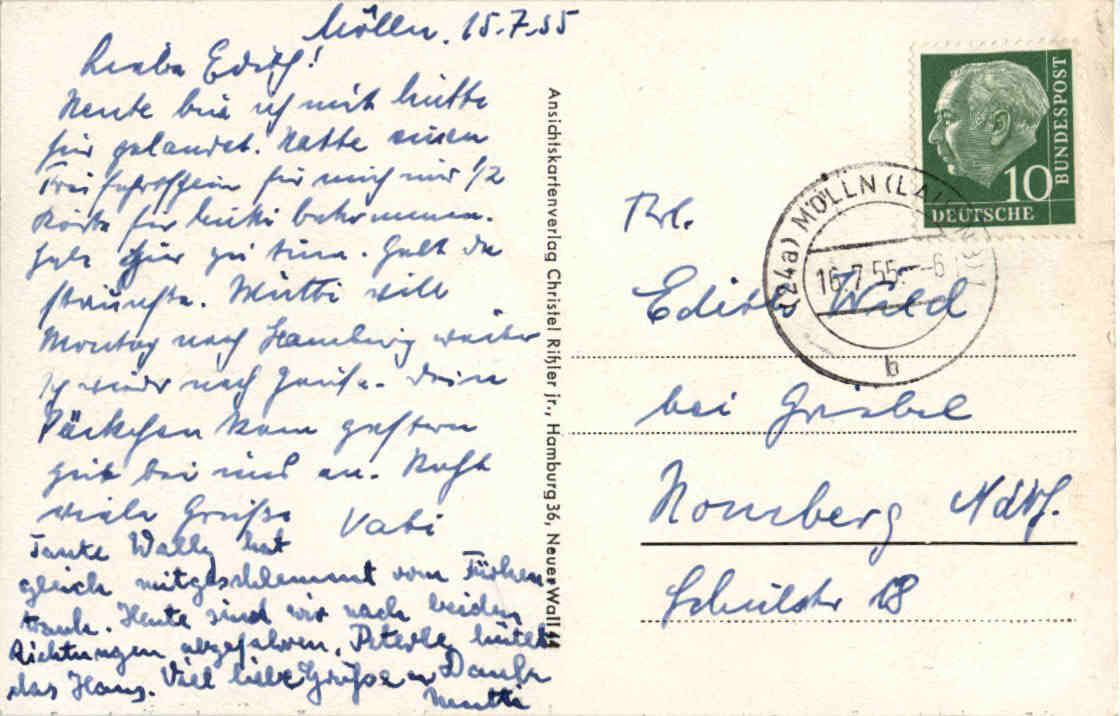 Mölln, 15.7.55
Liebe Edith!
Heute bin ich mit Mutti
hier gelandet. Hatte einen
Freifahrschein für mich und 1/2
Karte für Mutti bekommen.
Habe hier zu tun.
Mutti will
Montag nach Hamburg weiter
ich wieder nach Hause. Dein
Päckchen kam gestern
gut bei uns an. Recht
viele Grüße Vati
Tante Wally hat
gleich mitgeschlemmt vom
Heute sind wir nach beiden
Richtungen abgefahren, Peterle hütet
das Haus. Viel liebe Grüße u Dank
Mutti
Ansichtskartenverlag Christel Rißler jr., Hamburg 36, Neuer Wall 44
10
BUNDESPOST
DEUTSCHE
(24a) MÖLLN (LAUENB)
16.7.55.--6
b
Frl.
Edith Wild
bei Griebel
Homberg Ndrh.
Schulstr 18